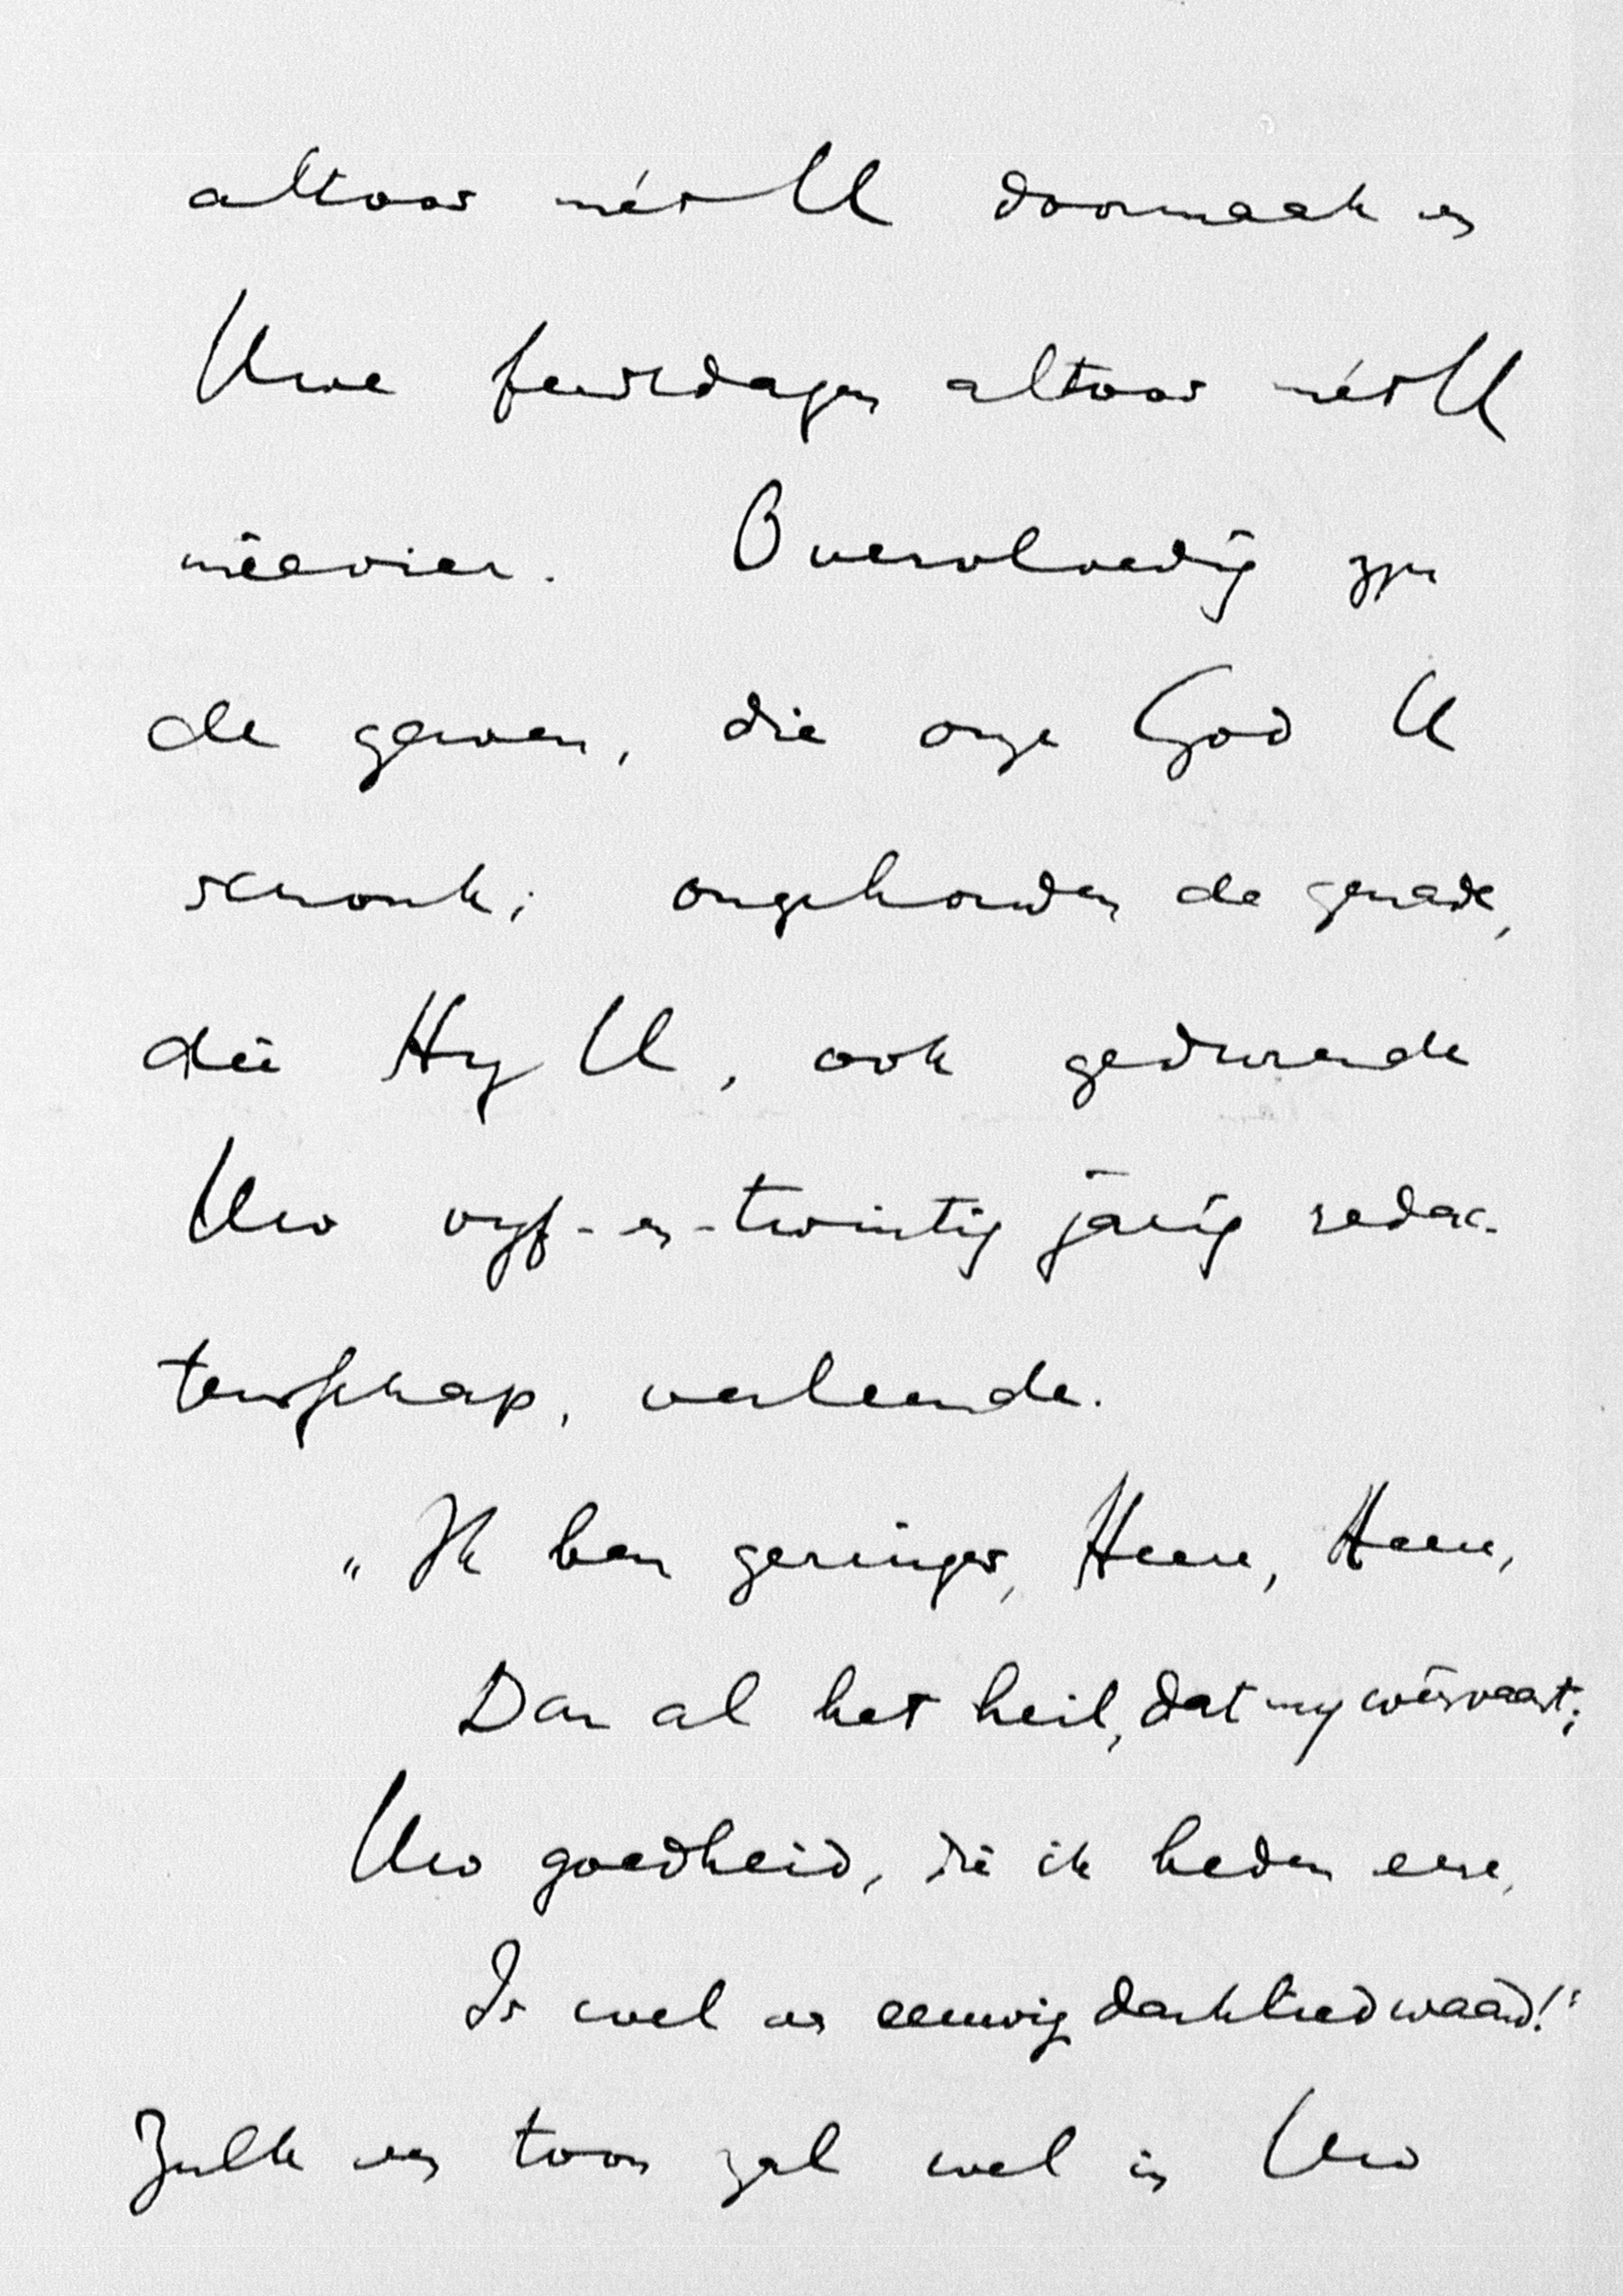 altoos mét U doormaak en
Uwe feestdagen altoos mét U
meevier. Overvloedig zyn
de gaven, die onze God U
schonk; ongehouden de genade,
die Hy U, ook gedurende
Uw vyf-en-twintig jarig redac-
teurschap, verleende.
"Ik ben geringer, Heere, Heere,
Dan al het heil, dat my wêervaart;
Uw goedheid, die ik heden eere,
Is wel een eeuwig danklied waard!"
Zulk een toon zal wel in Uw